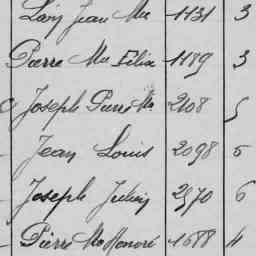 Jean Me 1131 3
Pierre Me Félix 1189 3
Joseph Pierre Me 2108 5
Jean Louis 2098 5
Joseph Julien 2970 6
Pierre Me Honoré 1688 4